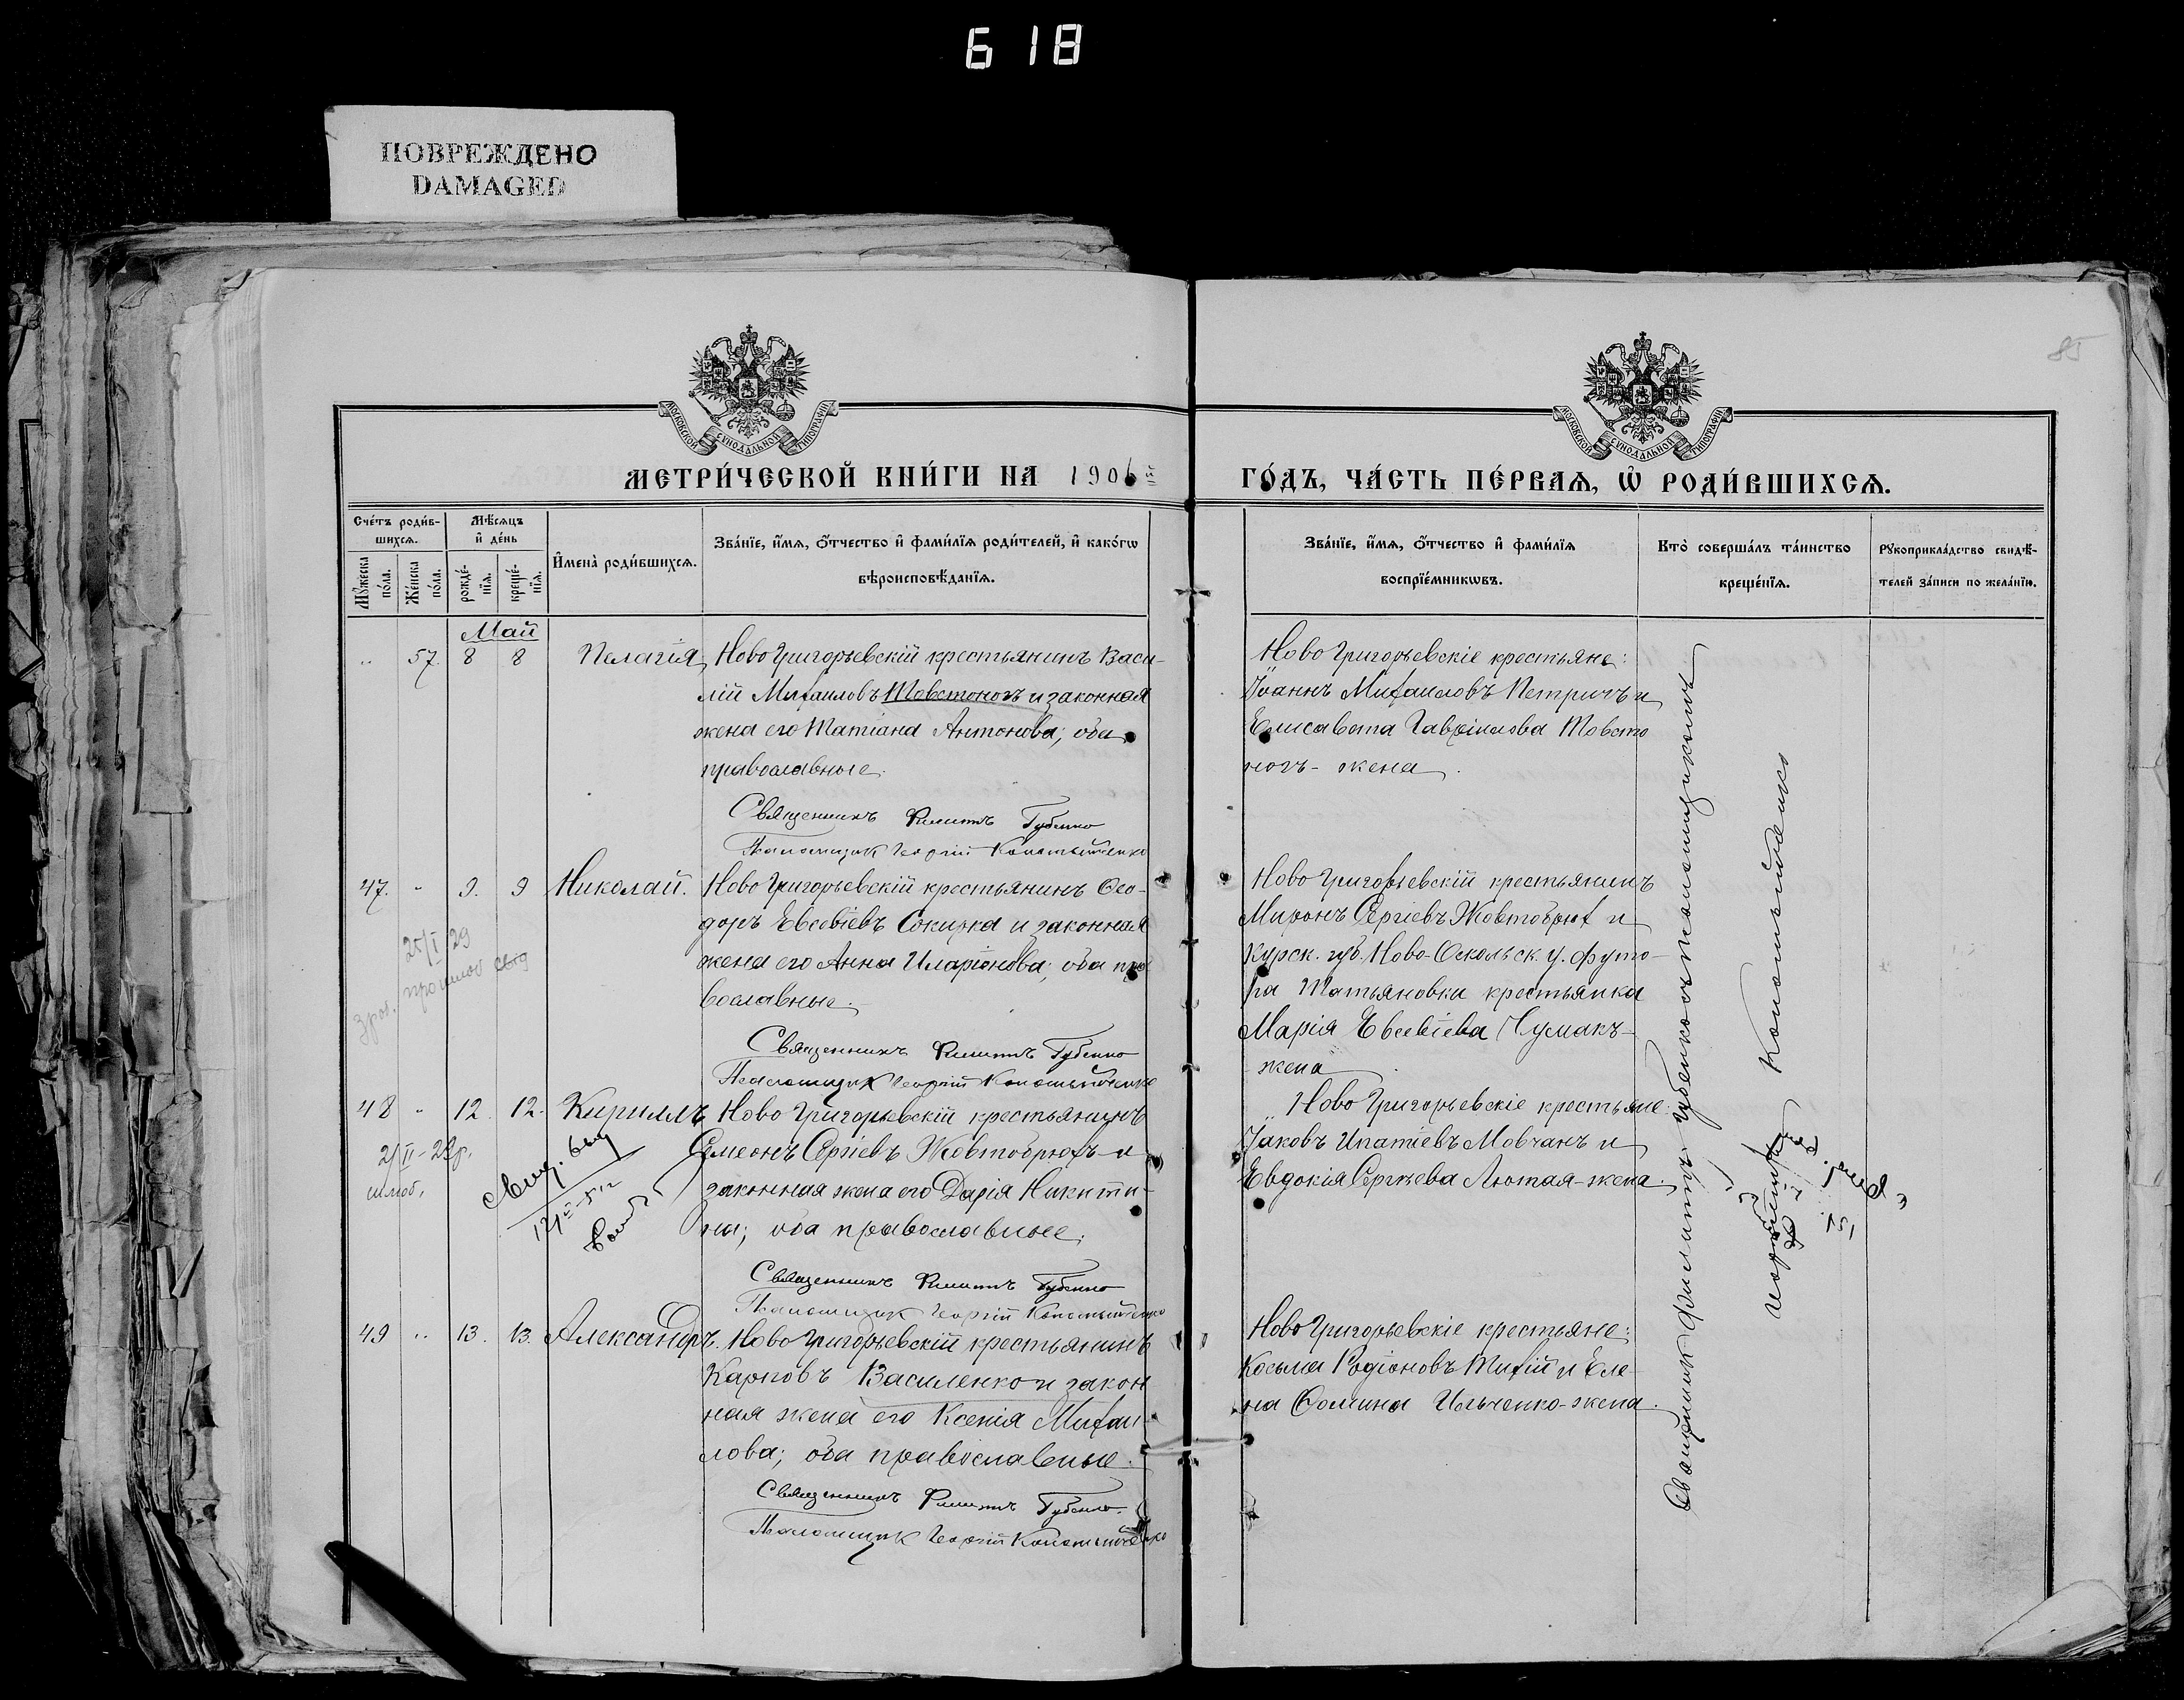 618
ПОВРЕЖДЕНО
DAMAGED
85
МОСКОВСКОЙ СѴНОДАЛЬНОЙ ТИПОГРАФІИ
МОСКОВСКОЙ СѴНОДАЛЬНОЙ ТИПОГРАФІИ
МЕТРИ́ЧЕСКОЙ КНИ́ГИ НА 1906й
ГО́ДЪ, ЧА́СТЬ ПЕ́РВАѦ, Ѡ҆ РОДИ́ВШИХСѦ.
Сче́тъ роди́в-
шихсѧ.
Мѹ́жеска
по́ла.
Же́нска
по́ла.
Мѣ́сѧцъ
и҆ де́нь
рожде́-
нїѧ.
креще́-
нїѧ.
И҆мена̀ роди́вшихсѧ.
Зва́нїе, и҆́мѧ, ѻ҆́тчество и҆ фами́лїѧ роди́телей, и҆ како́гѡ
вѣроисповѣ́данїѧ.
Зва́нїе, и҆́мѧ, ѻ҆́тчество и҆ фами́лїѧ
воспрїе́мникѡвъ.
Кто̀ соверша́лъ та́инство
креще́нїѧ.
Рѹкоприкла́дство свидѣ́-
телей за́писи по жела́нїю.
Май
" 57. 8 8 Пелагія, Ново Григорьевскій крестьянинъ Васи-
лій Михаиловъ Товстоногъ и законная
жена его Татіана Антонова; оба
православные.
Священникъ Филиппъ Губенко
Псаломщик Георгій
Ново Григорьевскіе крестьяне:
Іоаннъ Михаиловъ Петричъ и
Елисавета Гавріилова Товсто
ногъ - жена.
47. " 9. 9 Николай. Ново Григорьевскій крестьянинъ Ѳео-
доръ Евсевіевъ Сокирка и законная
жена его Анна Иларіонова; оба пра
вославные.
Священникъ Филиппъ Губенко
Псаломщик Георгій
25/I 29
Ново Григорьевскій крестьянинъ
Миронъ Сергіевъ Жовтобрюх и
Курск. губ. Ново-Оскольск. у. футо-
ра Татьяновки крестьянка
Марія Евсевіева Чумакъ-
жена
48 " 12. 12. Кириллъ Ново Григорьевскій крестьянинъ
Симеонъ Сергіевъ Жовтобрюхъ и
законная жена его Дарія Никити-
на; оба православные.
Священникъ Филиппъ Губенко
Псаломщик Георгій
" Ново Григорьевскіе крестьяне:
Іаковъ Ипатіевъ Мовчанъ и
Евдокія Сергѣева Лютая-жена.
49 " 13. 13. Александръ. Ново Григорьевскій крестьянинъ
Карповъ Василенко и закон
ная жена его Ксенія Михаи-
лова; оба православные.
Священникъ Филиппъ Губенко.
Псаломщик Георгій
Ново Григорьевскіе крестьяне:
Косьма Родіоновъ Тихій и Еле-
на Ѳомина Ильченко-жена.
Священник Филиппъ Губенко съ псаломщикомъ